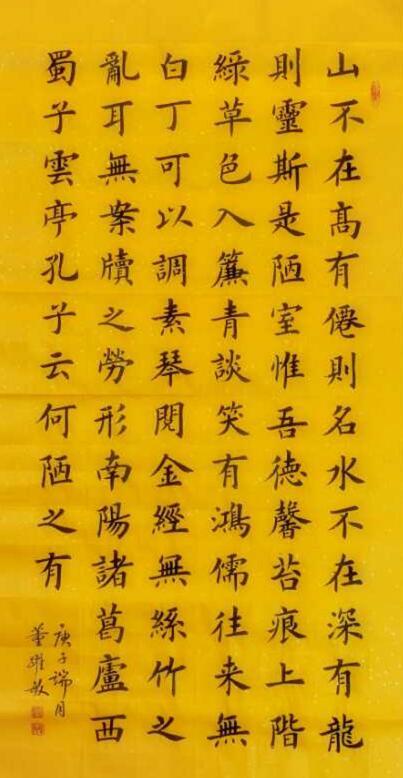 山不在高有僊則名水不在深有龍
則靈斯是陋室惟吾德馨苔痕上階
綠草色入簾青談笑有鴻儒往来無
白丁可以調素琴閱金經無絲竹之
亂耳無案牘之勞形南陽諸葛廬西
蜀子雲亭孔子云何陋之有
庚子端月